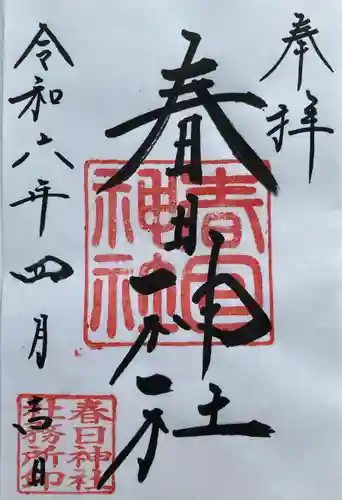 奉拝
春日神社
春日
神社
令和六年四月吉日
春日神社
社務所印